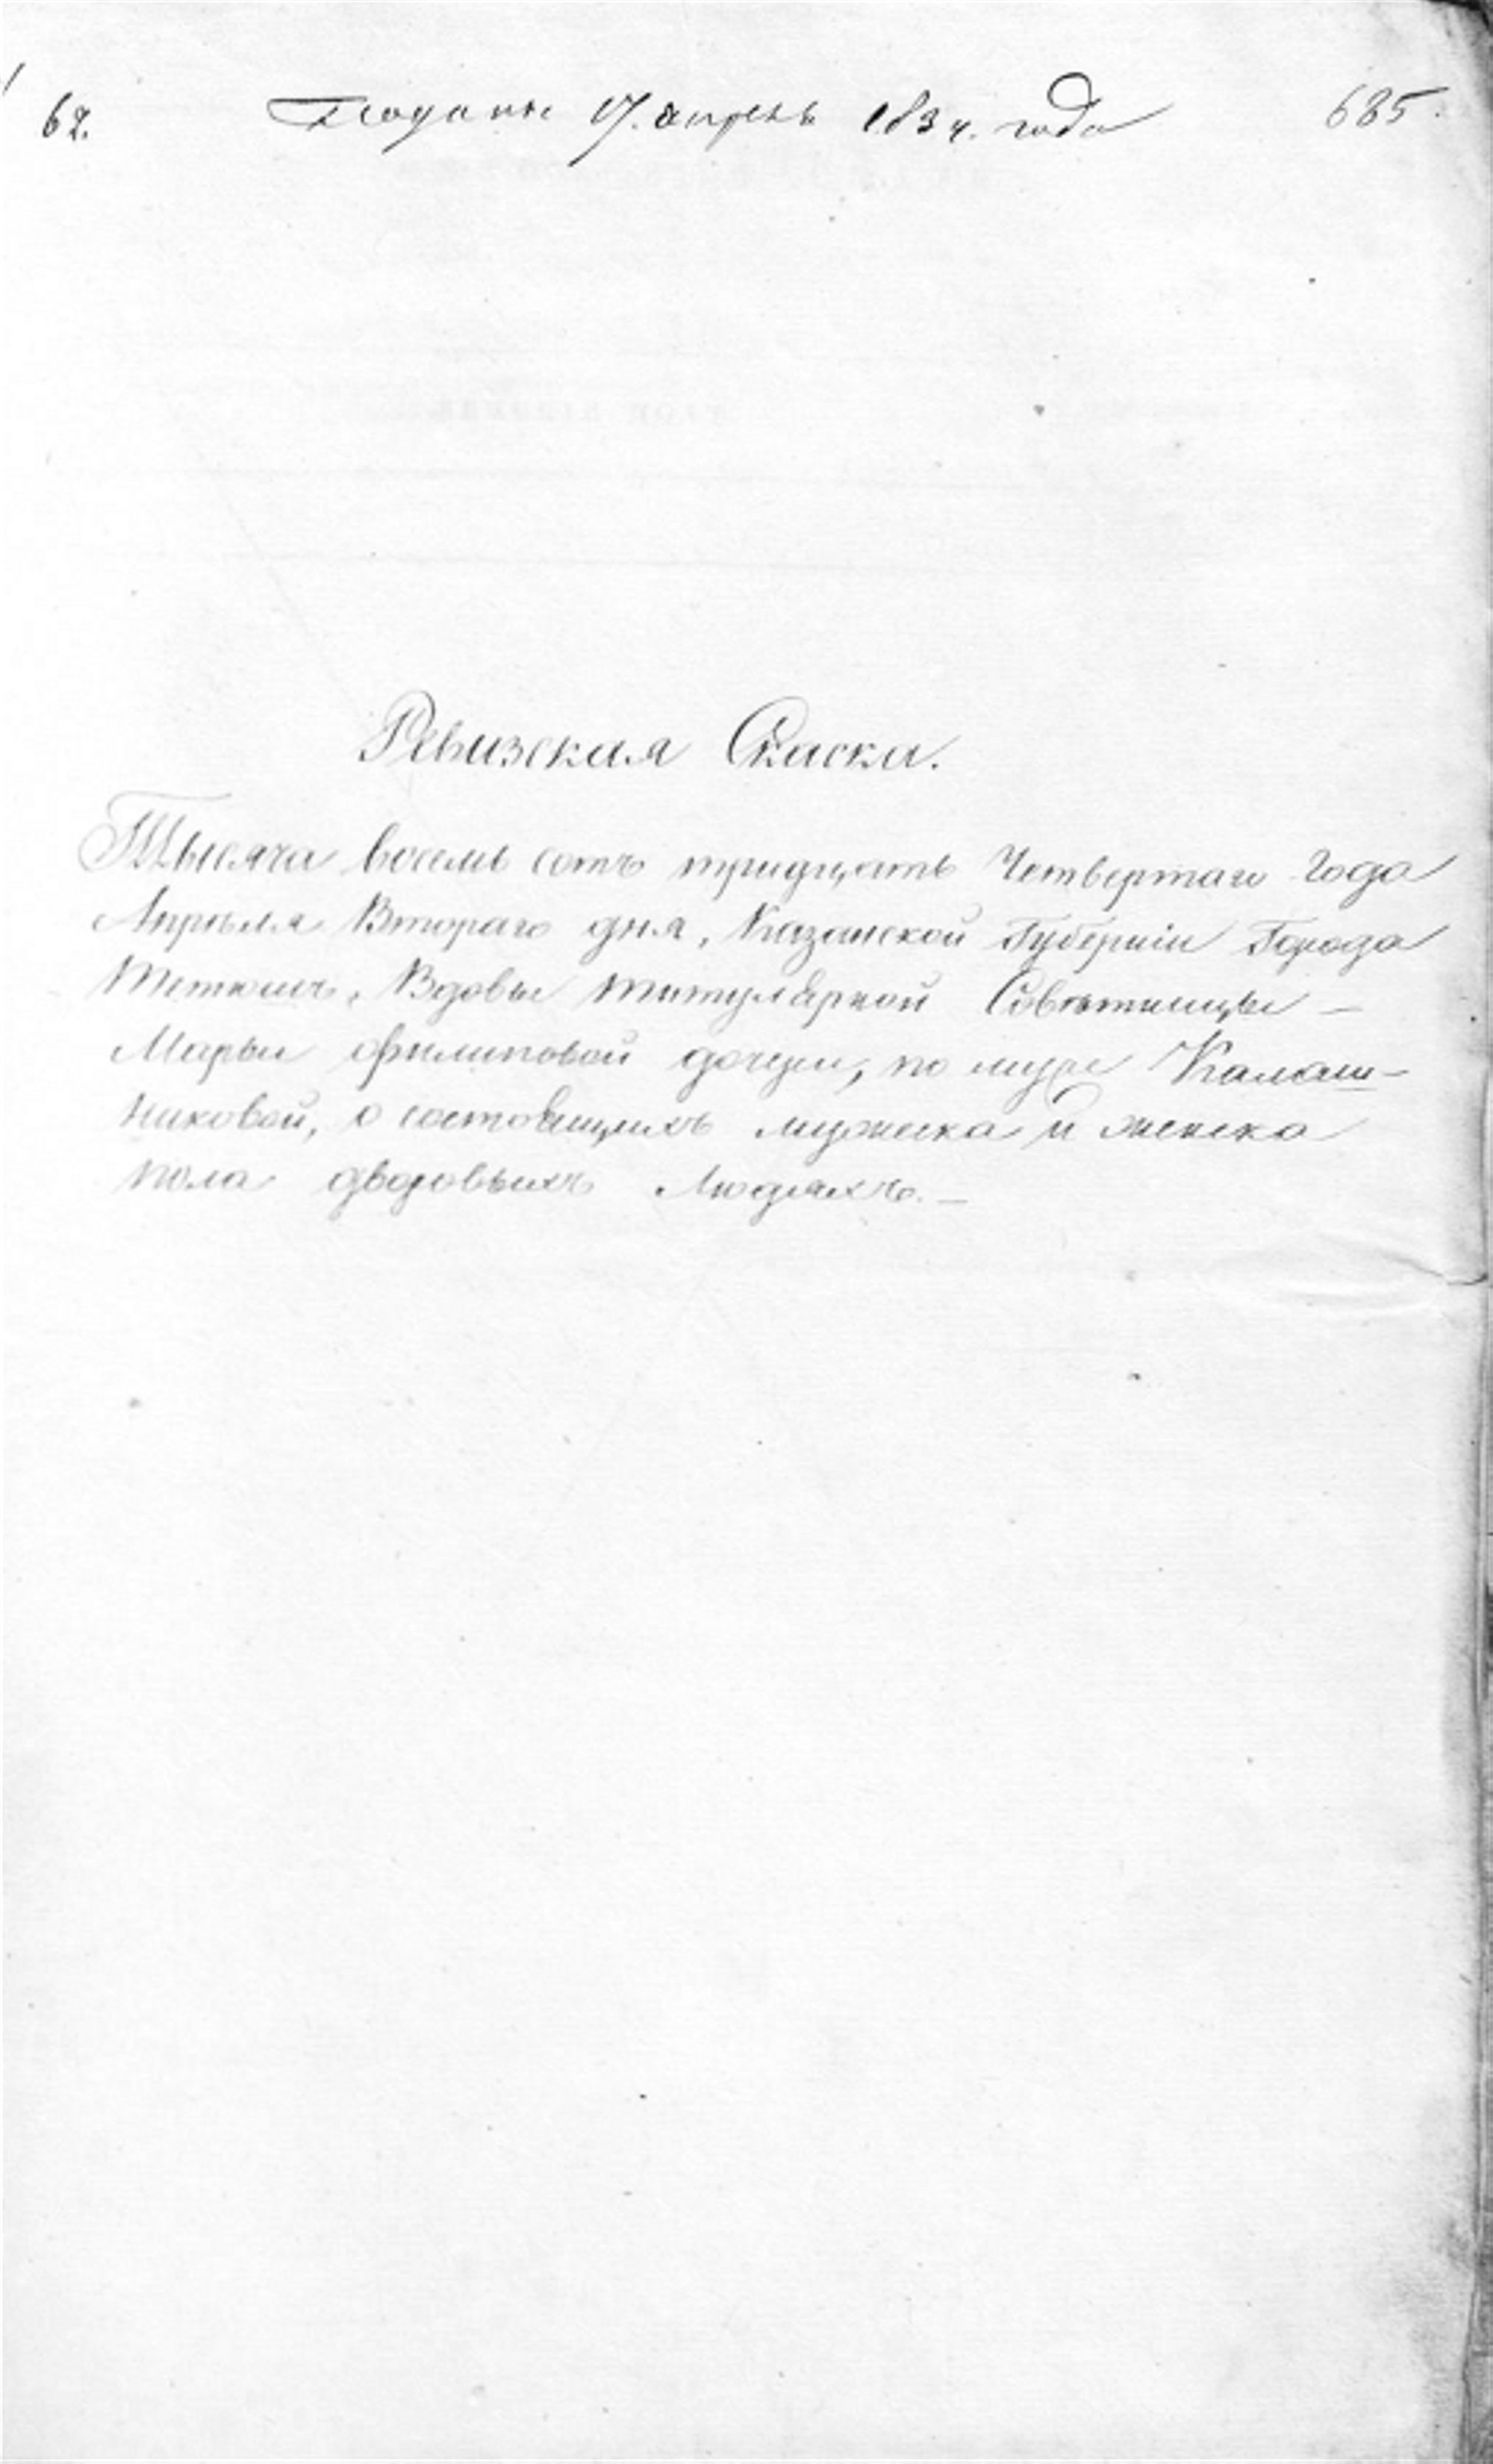 62. Подана 17. апреля 1834. года 685.
Ревизская Скаска.
Тысяча восемь сотъ тридцать Четвертаго Года
Апрѣля Втораго дня, Казанской Губерніи Города
Тетюшъ, Вдовы Титулярной Совѣтницы –
Марьи Филиповой дочери, по мужѣ Калаш-
никовой, о состоящихъ мужеска и женска
пола дворовыхъ Людяхъ. –